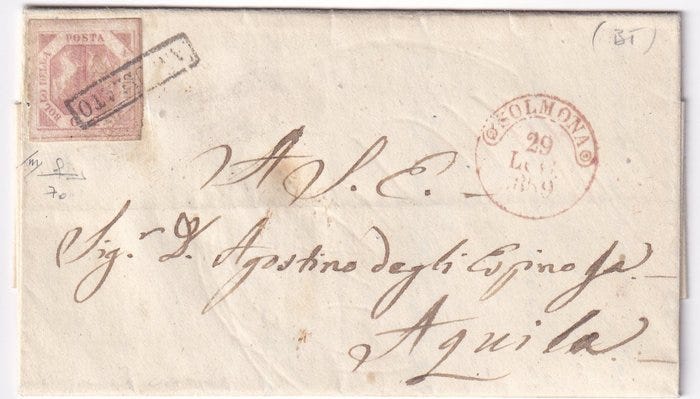 POSTA
BOLLO DELLA
ANNULLATO
(BT)
SOLMONA
29
LUG.
1859
70
A S. E.
Sig.r D. Agostino degli Espinosa
Aquila